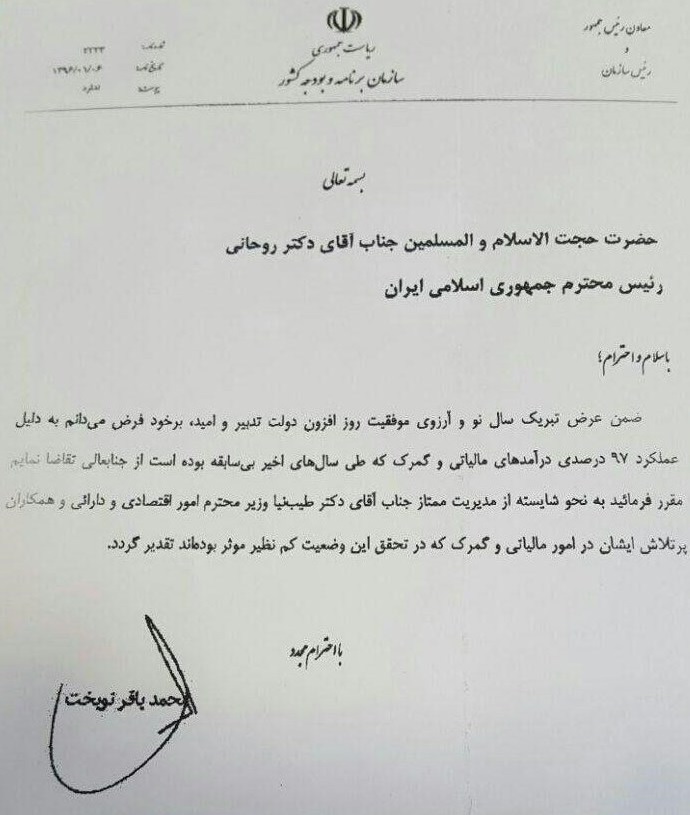 معاون رئیس جمهور
و
رئیس سازمان
ریاست جمهوری
سازمان برنامه و بودجه کشور
شماره: ۲۲۲۳
تاریخ: ۱۳۹۶/۰۱/۰۶
پیوست: ندارد
بسمه تعالی
حضرت حجت الاسلام و المسلمین جناب آقای دکتر روحانی
رئیس محترم جمهوری اسلامی ایران
باسلام و احترام؛
ضمن عرض تبریک سال نو و آرزوی موفقیت روز افزون دولت تدبیر و امید، برخود فرض می‌دانم به دلیل
عملکرد ۹۷ درصدی درآمدهای مالیاتی و گمرک که طی سال‌های اخیر بی‌سابقه بوده است از جنابعالی تقاضا نمایم
مقرر فرمائید به نحو شایسته از مدیریت ممتاز جناب آقای دکتر طیب‌نیا وزیر محترم امور اقتصادی و دارائی و همکاران
پرتلاش ایشان در امور مالیاتی و گمرک که در تحقق این وضعیت کم نظیر موثر بوده‌اند تقدیر گردد.
با احترام مجدد
محمد باقر نوبخت